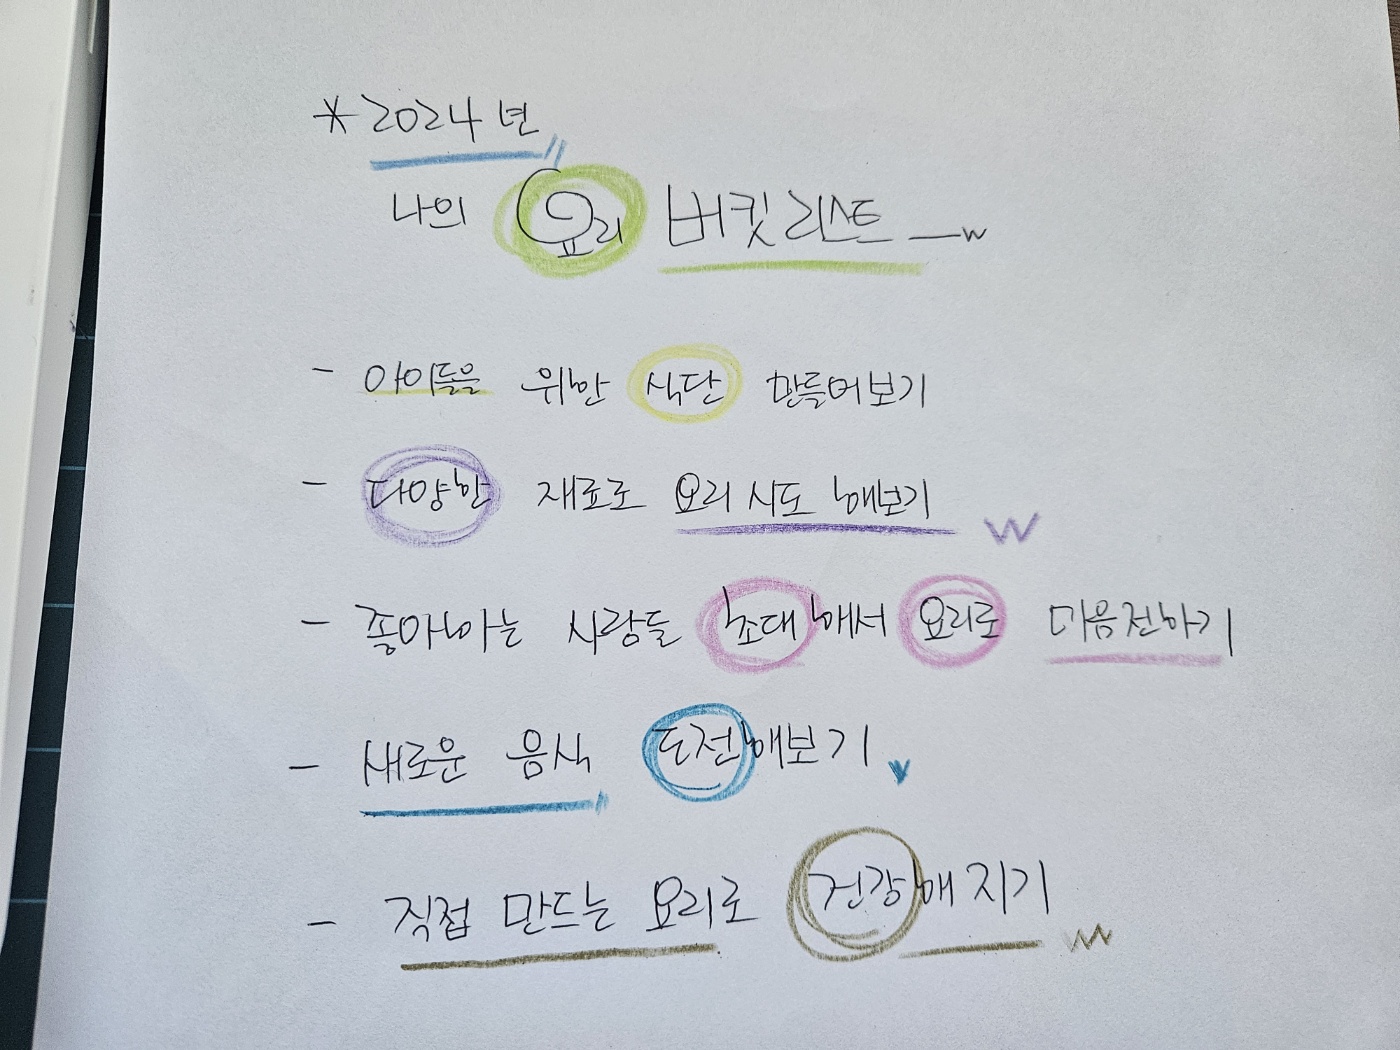 * 2024년
나의 요리 버킷리스트
- 아이들을 위한 식단 만들어보기
- 다양한 재료로 요리 시도 해보기
- 좋아하는 사람들 초대해서 요리로 마음전하기
- 새로운 음식 도전해보기
- 직접 만드는 요리로 건강해지기